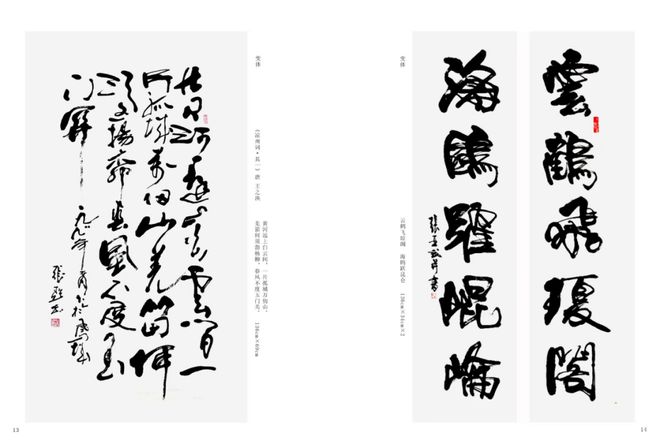 黄河远上白云间一
片孤城万仞山羌笛何
须怨杨柳春风不度玉
门关
变体
《凉州词·其一》唐 王之涣
黄河远上白云间，一片孤城万仞山。
羌笛何须怨杨柳，春风不度玉门关。
136cm×69cm
13
雲鶴飛瓊閣
海鷗躍崐崘
变体
云鹤飞琼阁 海鸥跃昆仑 136cm×34cm×2
14